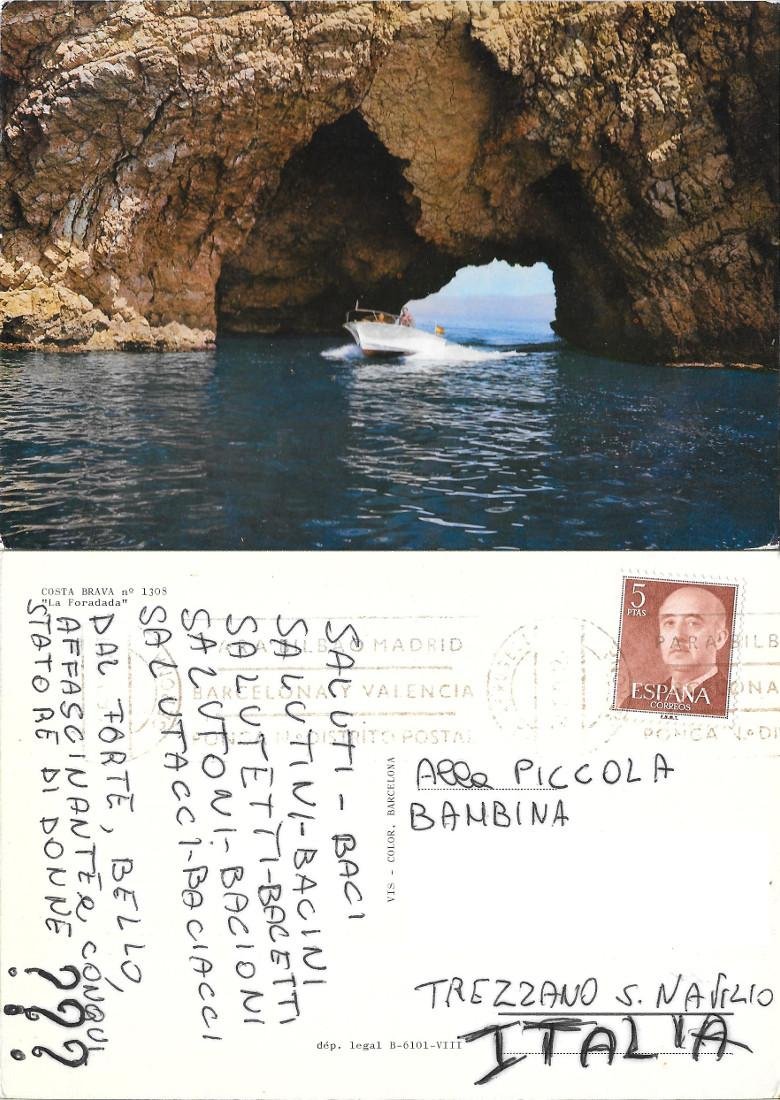 COSTA BRAVA nº 1308
"La Foradada"
SALUTI - BACI
SALUTINI-BACINI
SALUTETTI-BACETTI
SALUTONI-BACIONI
SALUTACCI-BACIACCI
DAL FORTE, BELLO,
AFFASCINANTE CONQUI
STATORE DI DONNE ???
PARA BILBAO MADRID
BARCELONA Y VALENCIA
PONGA Nº DISTRITO POSTAL
5
PTAS
ESPAÑA
CORREOS
VIS - COLOR, BARCELONA
Alla PICCOLA
BAMBINA
TREZZANO S. NAVILIO
ITALIA
dép. legal B-6101-VIII